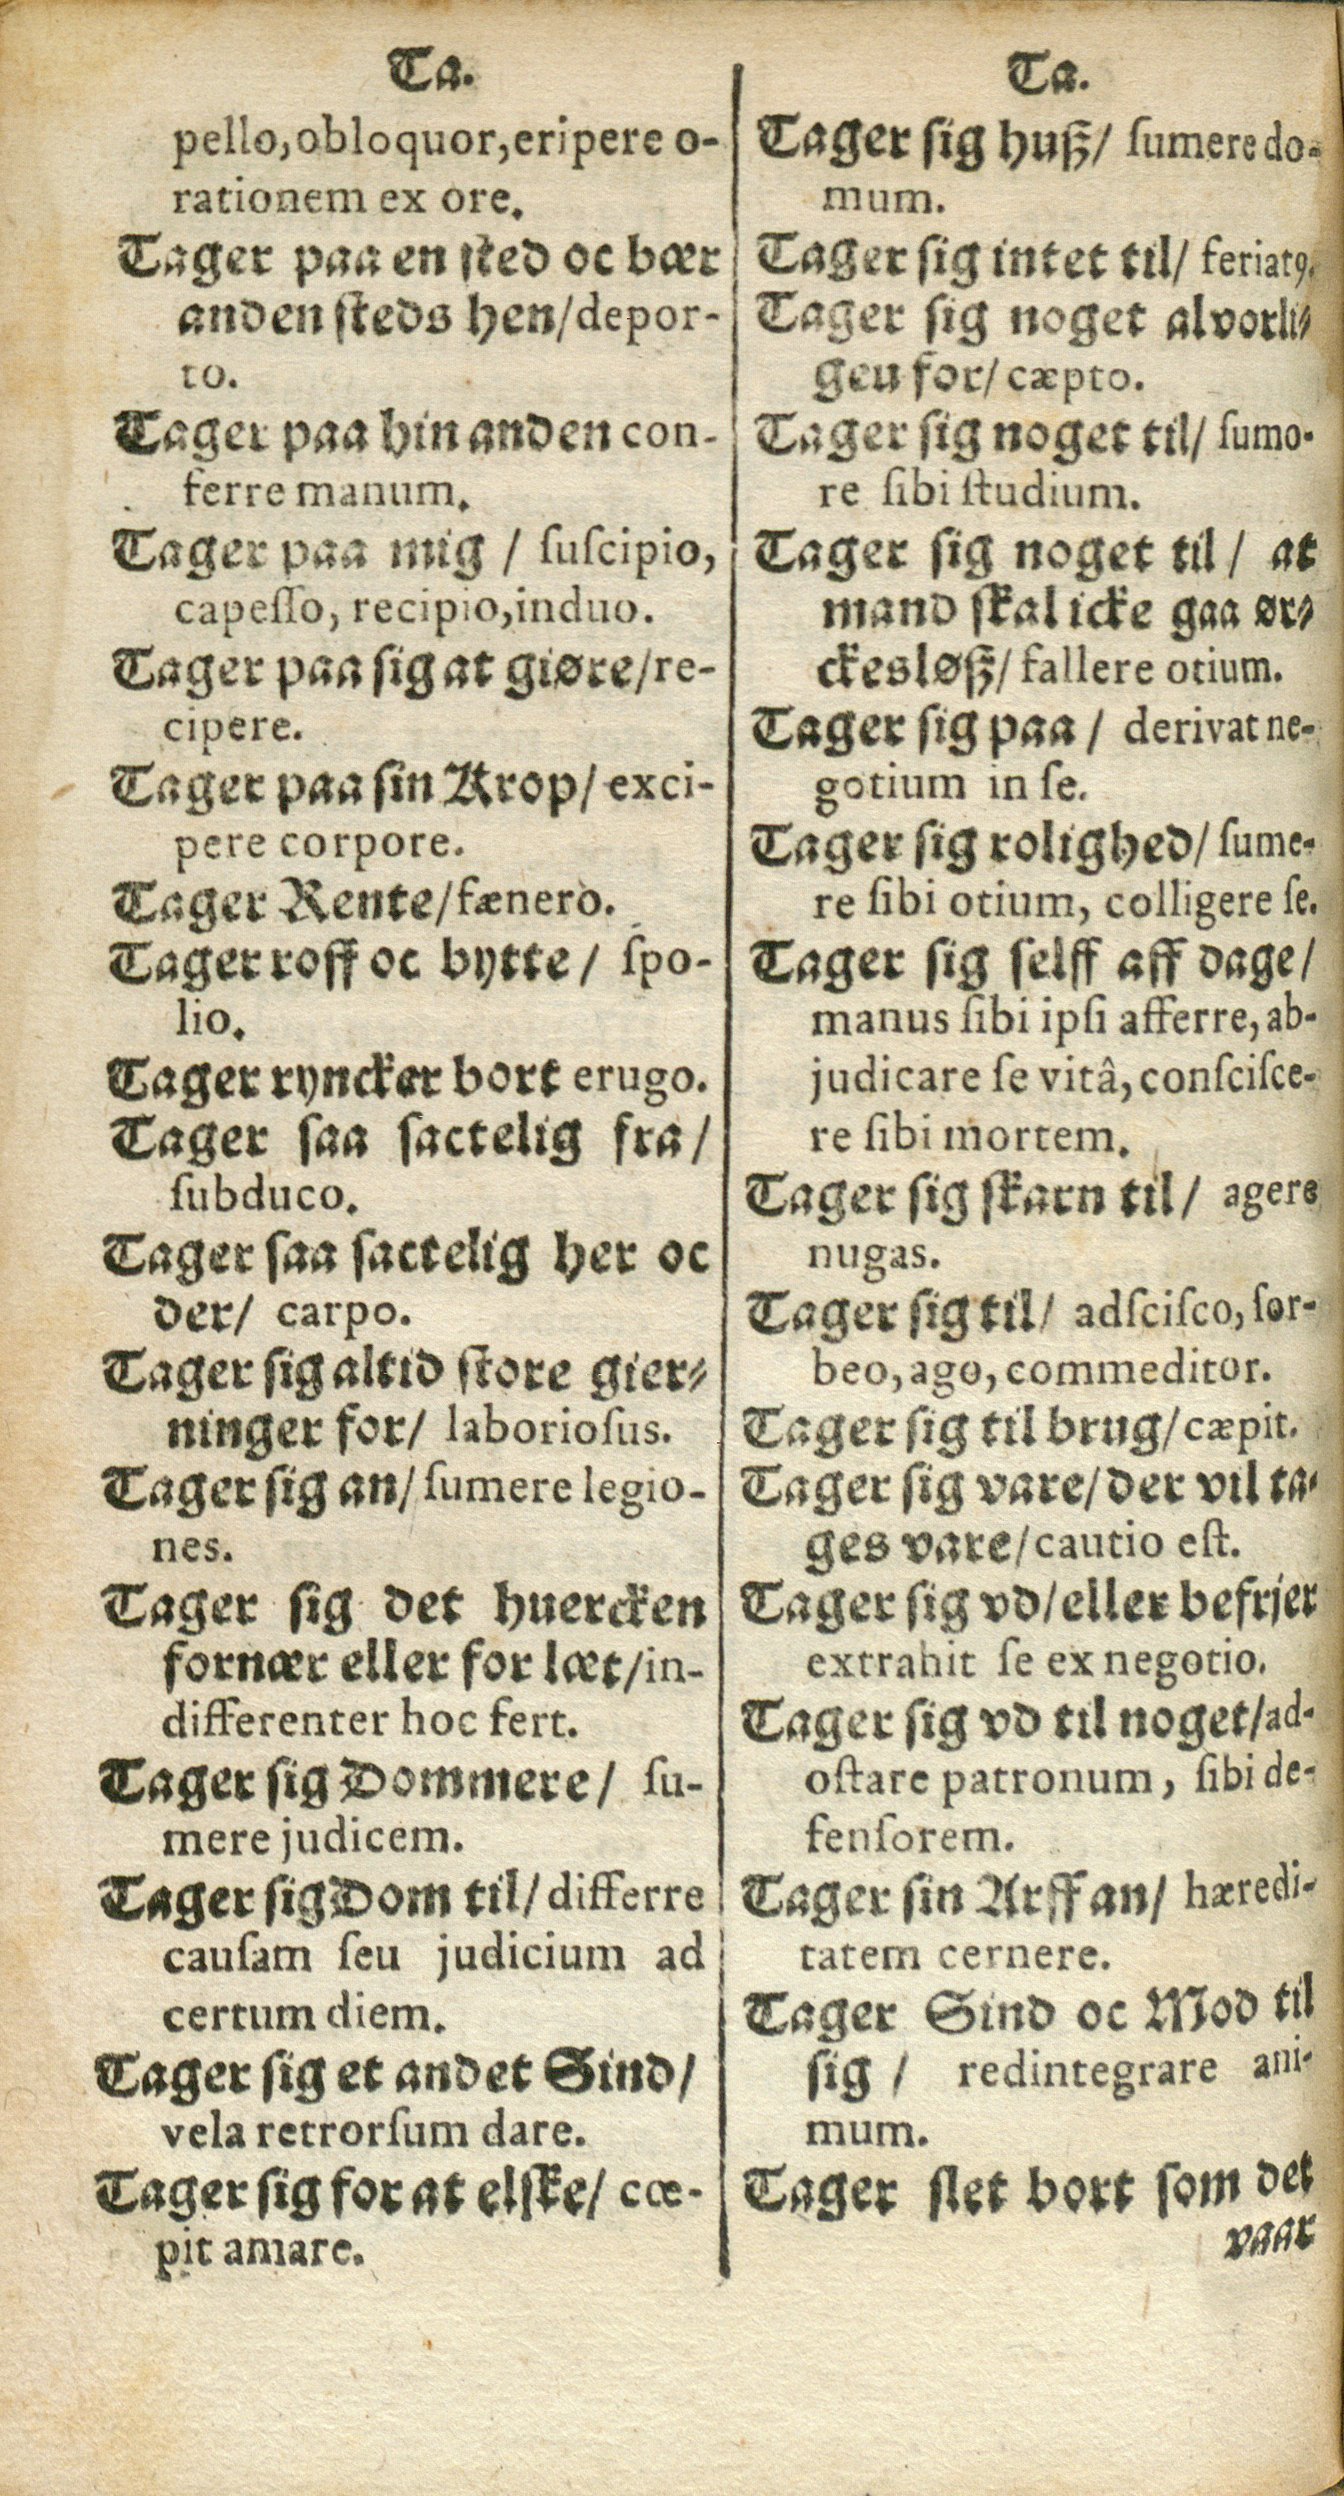 Ta.
pello, obloquor, eripere o-
rationem ex ore.
Tager paa en sted oc bær
anden steds hen/ depor-
to.
Tager paa hin anden con-
ferre manum.
Tager paa mig / ſuſcipio,
capeſſo, recipio, induo.
Tager paa sig at giøre/ re-
cipere.
Tager paa ſin Krop/ exci-
pere corpore.
Tager Rente/ fænero.
Tager roff oc bytte / ſpo-
lio.
Tager ryncker bort erugo.
Tager ſaa ſactelig fra/
ſubduco.
Tager ſaa ſactelig her oc
der/ carpo.
Tager ſig altid ſtore gier⸗
ninger for/ laborioſus.
Tager ſig an/ ſumere legio-
nes.
Tager ſig det huercken
fornær eller for læt/ in-
differenter hoc fert.
Tager ſig Dommere/ ſu-
mere judicem.
Tager ſig Dom til/ differre
cauſam ſeu judicium ad
certum diem.
Tager ſig et andet Sind/
vela retrorſum dare.
Tager ſig for at elſke/ cœ-
pit amare.
Ta.
Tager ſig huß/ ſumere do-
mum.
Tager ſig intet til/ feriatꝰ.
Tager ſig noget alvorli⸗
geu for/ cæpto.
Tager ſig noget til/ ſumo-
re ſibi ſtudium.
Tager ſig noget til/ at
mand ſkal icke gaa ør⸗
ckesløß/ fallere otium.
Tager ſig paa / derivat ne-
gotium in ſe.
Tager ſig rolighed/ ſume-
re ſibi otium, colligere ſe.
Tager ſig ſelff aff dage/
manus ſibi ipſi afferre, ab-
judicare ſe vitâ, conſciſce-
re ſibi mortem.
Tager ſig ſkarn til/ agere
nugas.
Tager ſig til/ adſciſco, ſor-
beo, ago, commeditor.
Tager ſig til brug/ cæpit.
Tager ſig vare/ der vil ta⸗
ges vare/ cautio eſt.
Tager ſig vd/ eller befrjer
extrahit ſe ex negotio.
Tager ſig vd til noget/ ad-
oſtare patronum, ſibi de-
fenſorem.
Tager ſin Arff an/ hæredi-
tatem cernere.
Tager Sind oc Mod til
ſig / redintegrare ani-
mum.
Tager ſlet bort ſom det
vaar